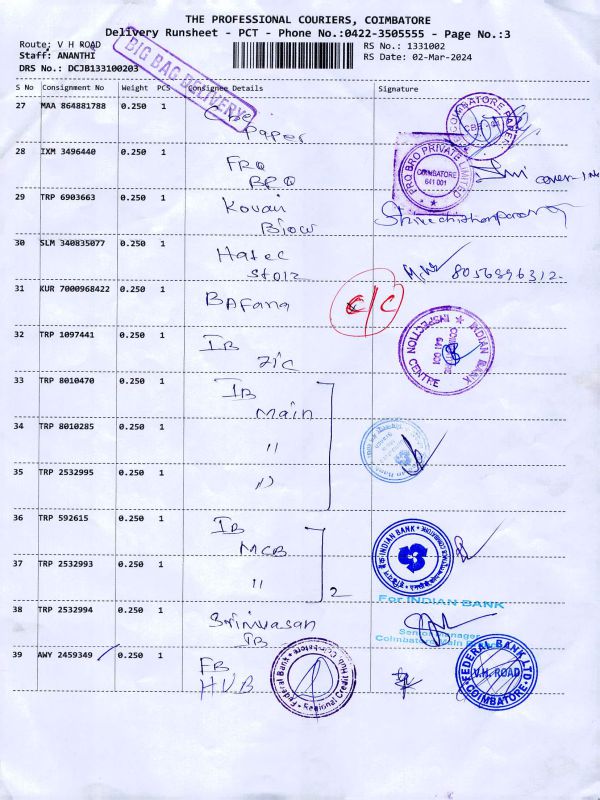 THE PROFESSIONAL COURIERS, COIMBATORE
Delivery Runsheet - PCT - Phone No.:0422-3505555 - Page No.:3
Route: V H ROAD
RS No.: 1331002
Staff: ANANTHI
RS Date: 02-Mar-2024
DRS No.: DCJB133100203
BIG BAG DELIVERY
S No Consignment No Weight PCS Consignee Details Signature
27 MAA 864881788 0.250 1
Paper
COIMBATORE
28 IXM 3496440 0.250 1 FRQ
BRO
FRQ BRO PRIVATE LIMITED
COIMBATORE
641 001
29 TRP 6903663 0.250 1 Kovai
30 SLM 340835077 0.250 1 Hatec
31 KUR 7000968422 0.250 1 BAFana
C/C
32 TRP 1097441 0.250 1 IB
ZIC
INDIAN BANK
INSPECTION CENTRE
641 001
33 TRP 8010470 0.250 1 IB
Main
34 TRP 8010285 0.250 1 "
35 TRP 2532995 0.250 1 "
36 TRP 592615 0.250 1 IB
MCB
INDIAN BANK
37 TRP 2532993 0.250 1 "
2
For INDIAN BANK
38 TRP 2532994 0.250 1 Srinivasan
IB
Senior Manager
Coimbatore Main
39 AWY 2459349 0.250 1 FB
HUB
Federal Bank
Regional Credit Hub Coimbatore
FEDERAL BANK LTD.
V.H. ROAD
COIMBATORE